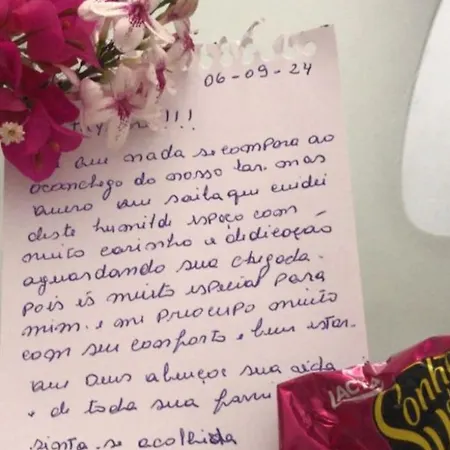 06-09-24
!!!
em nada se compara ao
aconchego do nosso lar. mas
quero que saiba que cuidei
deste humilde espaço com
muito carinho e dedicação
aguardando sua chegada.
pois és muito especial para
mim. e me preocupo muito
com seu conforto e bem estar.
que Deus abençoe sua vida
e de toda sua famí
sinta-se acolhida
LACTA
Sonho